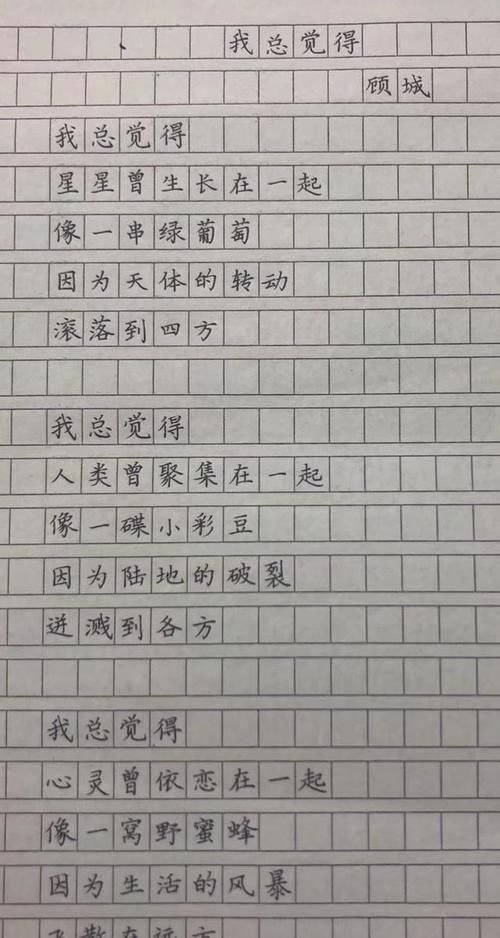 我总觉得
顾城
我总觉得
星星曾生长在一起
像一串绿葡萄
因为天体的转动
滚落到四方
我总觉得
人类曾聚集在一起
像一碟小彩豆
因为陆地的破裂
迸溅到各方
我总觉得
心灵曾依恋在一起
像一窝野蜜蜂
因为生活的风暴
飞散在远方